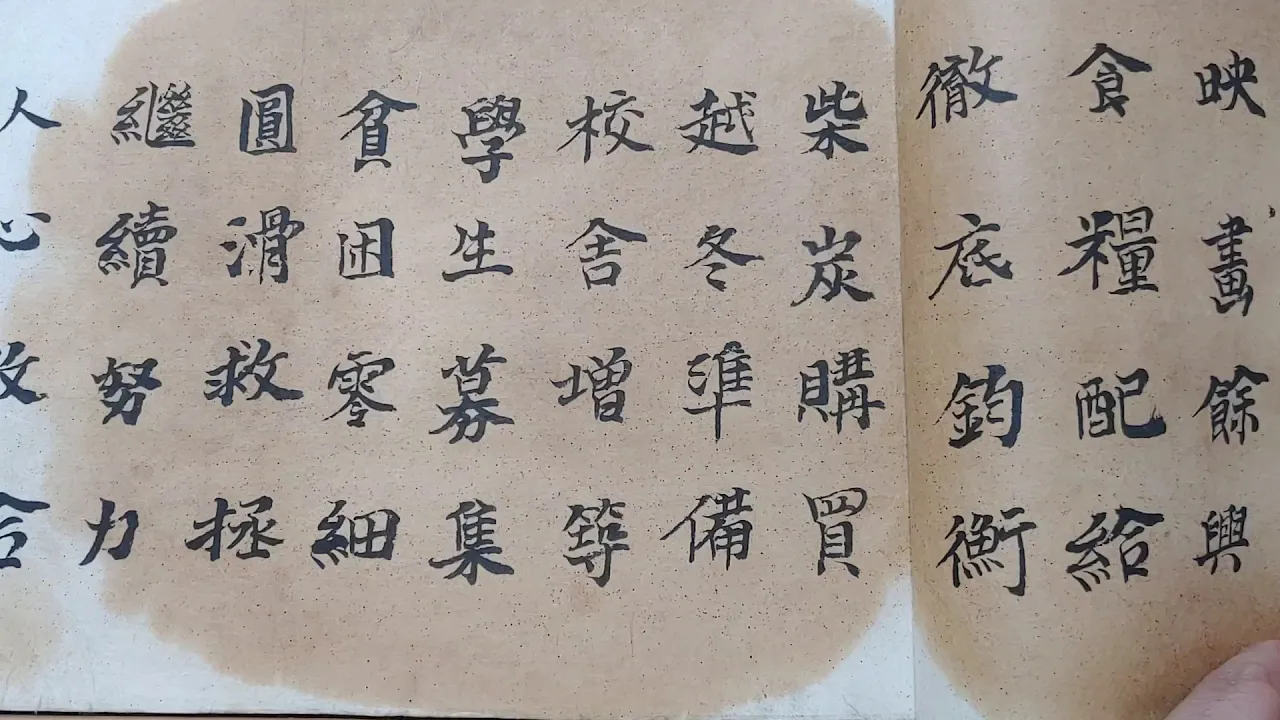 映畫餘興
食糧配給
徹底鈞衡
柴炭購買
越冬準備
校舍增築
學生募集
貧困零細
圓滑救拯
繼續努力
人心收合